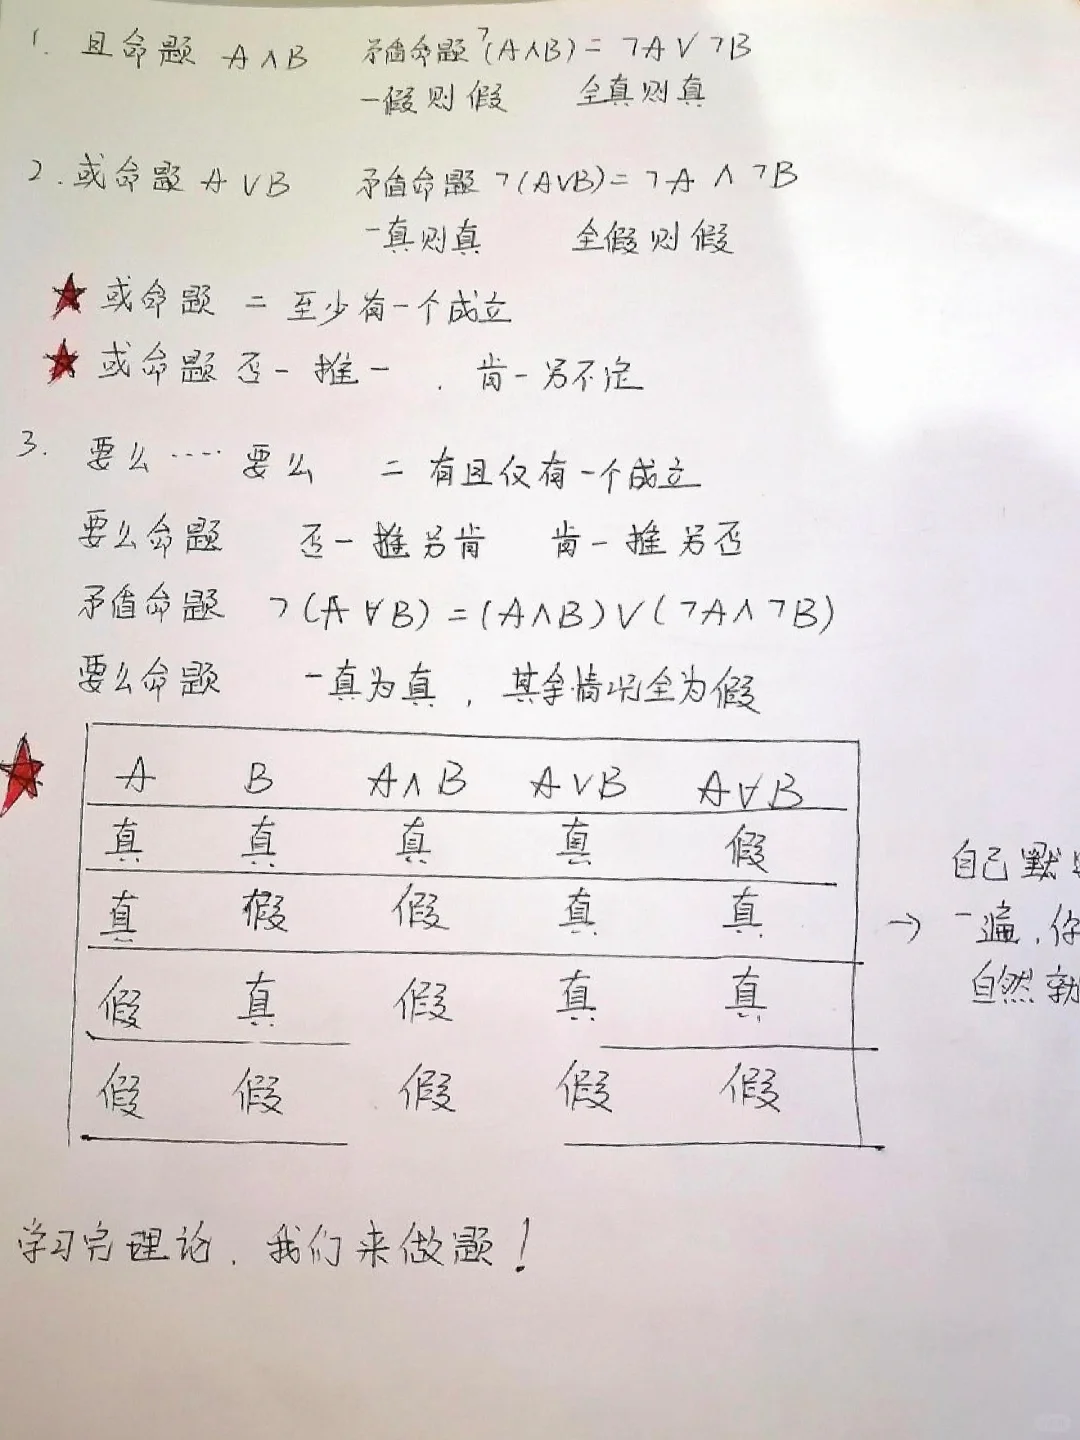 1. 且命题 A∧B 矛盾命题 ¬(A∧B)= ¬A∨¬B
一假则假 全真则真
2. 或命题 A∨B 矛盾命题 ¬(A∨B)= ¬A ∧ ¬B
一真则真 全假则假
★ 或命题 = 至少有一个成立
★ 或命题 否一推一 , 肯一另不定
3. 要么……要么 = 有且仅有一个成立
要么命题 否一推另肯 肯一推另否
矛盾命题 ¬(A∀B)=(A∧B)∨(¬A∧¬B)
要么命题 一真为真, 其余情况全为假
★ A B A∧B A∨B A∀B
真 真 真 真 假
真 假 假 真 真
假 真 假 真 真
假 假 假 假 假
自己默
→ 一遍,你
自然就
学习完理论, 我们来做题!